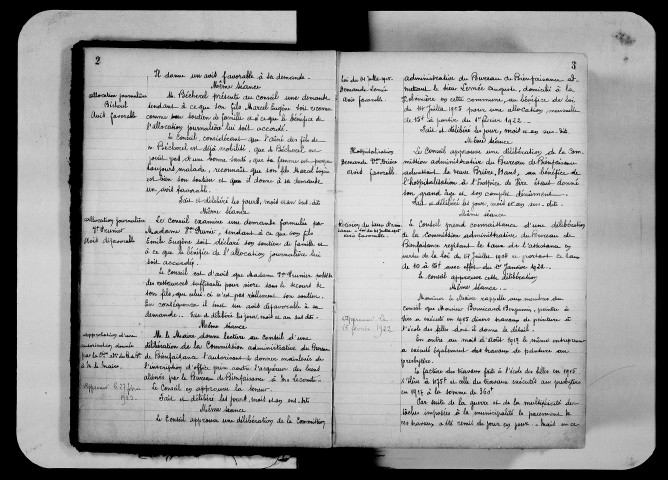 2
Il donne un avis favorable à sa demande.
Même séance
allocation journalière
Béchenel
Avis favorable
M. Béchenel présente au conseil une demande
tendant à ce que son fils Marcel Eugène soit reconnu
comme son soutien de famille et à ce que le bénéfice de
l'allocation journalière lui soit accordé.
Le Conseil, considérant que l'aîné des fils de
M. Béchenel est déjà mobilisé, que M. Béchenel ne
jouit pas d'une bonne santé, que sa femme est presque
toujours malade, reconnaît que son fils Marcel Eugène
est bien son soutien et que il donne à sa demande
un avis favorable.
Fait et délibéré les jour, mois et an sus dits
Même séance
allocation journalière
Vve Prunier
Avis défavorable
Le Conseil examine une demande formulée par
Madame Vve Prunier, tendant à ce que son fils
Emile Eugène soit déclaré son soutien de famille et
à ce que le bénéfice de l'allocation journalière lui
soit accordée.
Le Conseil est d'avis que Madame Vve Prunier possède
des ressources suffisantes pour vivre sans le secours de
son fils, que celui-ci n'est pas réellement son soutien.
En conséquence il émet un avis défavorable à sa
demande. Fait et délibéré les jour, mois et an sus dits.
Même séance
M. le Maire donne lecture au Conseil d'une
délibération de la Commission administrative du Bureau
de Bienfaisance l'autorisant à donner mainlevée de
l'inscription d'office prise contre l'acquéreur des biens
aliénés par le Bureau de Bienfaisance à
Le Conseil en approuve la teneur.
Fait et délibéré les jour, mois et an sus dits
Même séance
Le Conseil approuve une délibération de la Commission
3
Loi du 14 juillet 1905
Demande
Avis favorable.
administrative du Bureau de Bienfaisance ad-
mettant le sieur Auguste, domicilié à la
en cette commune, au bénéfice de la loi
du 14 juillet 1905 pour une allocation mensuelle
de 15f à partir du 1er février 1922.
Fait et délibéré les jour, mois et an sus dits.
Même séance
Hospitalisation
Demande Vve
Avis favorable
Le Conseil approuve une délibération de la Com-
mission administrative du Bureau de Bienfaisance
admettant la veuve au bénéfice
de l'hospitalisation à l'hospice de étant donné
son grand âge et son complet dénuement.
Fait et délibéré les jour, mois et an sus dits.
Même séance
Le Conseil prend connaissance d'une délibération
de la Commission administrative du Bureau de
Bienfaisance révisant le taux de l'assistance en
vertu de la loi du 14 juillet 1905 et portant ce taux
de 10 à 15f avec effet du 1er Janvier 1922.
Le conseil approuve cette délibération
Même séance.
Approuvé le
15 février 1922
Monsieur le Maire rappelle aux membres du
Conseil que Monsieur Benjamin, peintre à
a exécuté en 1915 divers travaux de peinture à
l'école des filles dont il donne le détail.
En outre au mois d'Août 1917 le même entrepreneur
a exécuté également des travaux de peinture au
presbytère.
La facture des travaux faits à l'école des filles en 1915
s'élève à et celle des travaux exécutés au presbytère
en 1917 à la somme de
Par suite de la guerre et de la multiplicité des
tâches imposées à la municipalité le paiement de
ces travaux a été remis de jour en jour. Mais en ce